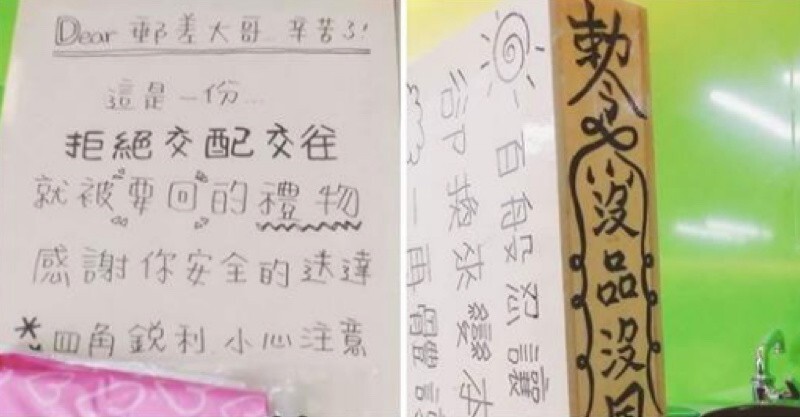 Dear 郵差大哥 辛苦了!
這是一份...
拒絕交配交往
就被要回的禮物
感謝你安全的送達
* 四角銳利 小心注意
百般忍讓
卻換來變本
一再
勅令
沒品沒